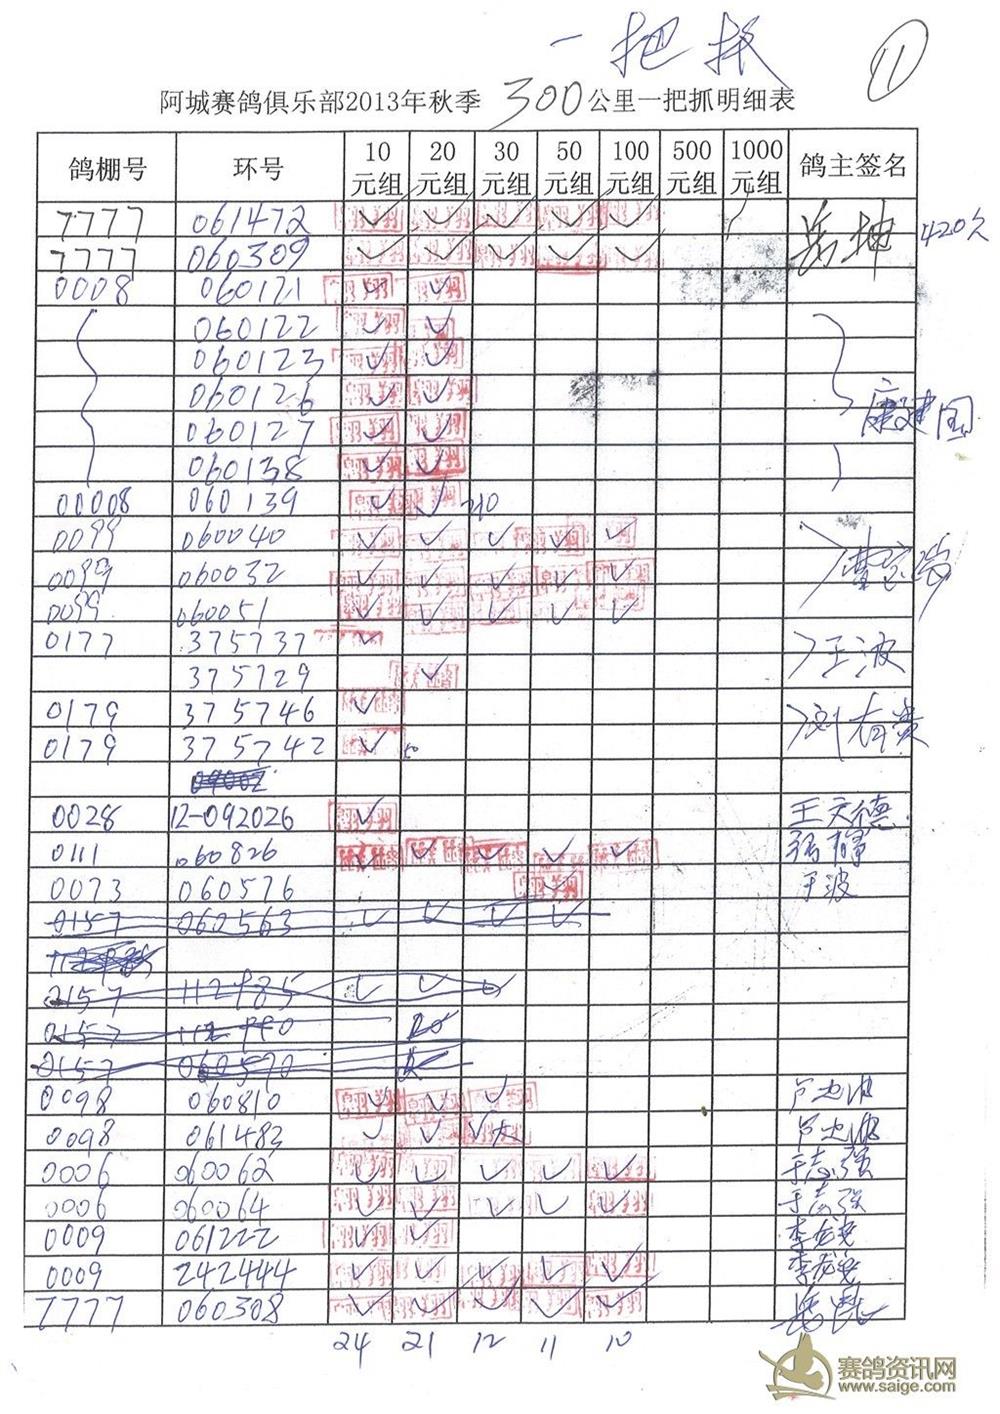 一把抓
11
阿城赛鸽俱乐部2013年秋季 300公里一把抓明细表
鸽棚号 环号 10元组 20元组 30元组 50元组 100元组 500元组 1000元组 鸽主签名
7777 061472 ✓ ✓ ✓ ✓ ✓
7777 060309 ✓ ✓ ✓ ✓ ✓ 420欠
0008 060121 ✓ ✓
060122 ✓ ✓
060123 ✓ ✓
060126 ✓ ✓
060127 ✓ ✓ 康建国
060138 ✓ ✓
00008 060139 ✓ ✓ 210
0099 060040 ✓ ✓ ✓ ✓ ✓
0099 060032 ✓ ✓ ✓ ✓ ✓
0099 060051 ✓ ✓ ✓ ✓ ✓
0177 375737 ✓ 王波
375729 ✓
0179 375746 ✓
0179 375742 ✓
0028 12-092026 ✓ 王天德
0111 060826 ✓ ✓ ✓ ✓ ✓
0073 060576 ✓ 于波
0157 060563 ✓ ✓ ✓ ✓
0157 112985 ✓ ✓ ✓
0157 112990
0157 060570
0098 060810 ✓ ✓ ✓
0098 061483 ✓ ✓ ✓
0006 060062 ✓ ✓ ✓ ✓ ✓ 于志强
0006 060064 ✓ ✓ ✓ ✓ ✓ 于志强
0009 061222 ✓ ✓
0009 242444 ✓ ✓ ✓ ✓ ✓
7777 060308 ✓ ✓ ✓ ✓ ✓
24 21 12 11 10
赛鸽资讯网
www.saige.com